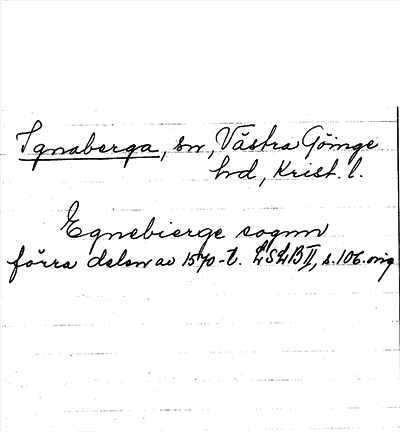 Ignaberga, sn, Västra Göinge
hd, Krist. l.
Egnebierge sognn
förra delen av 1570-t. LSLB II, s. 106. orig